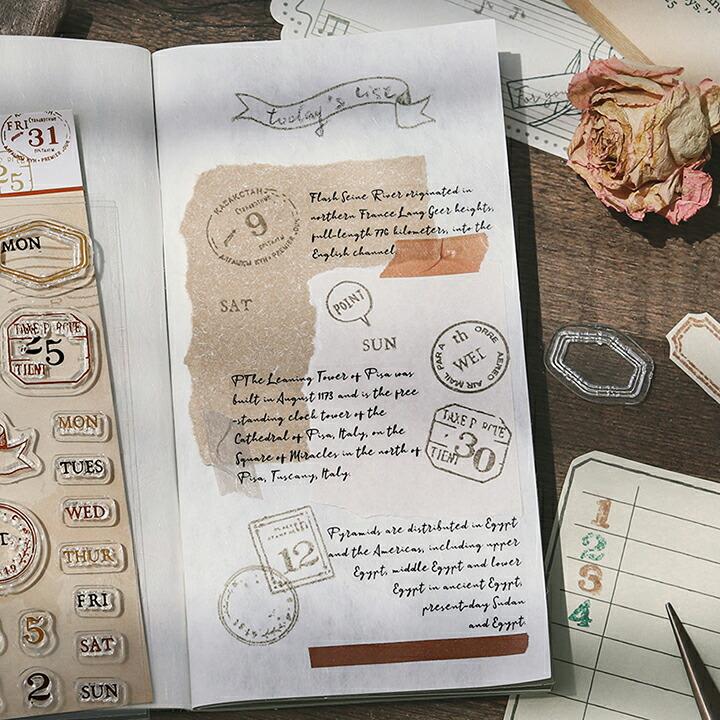 today's list
КАЗАКСТАН
9
АЛҒАШҚЫ КҮН • PREMIER • JOUR
Flash Seine River originated in
northern France Lang Geer heights,
full-length 776 kilometers, into the
English channel.
SAT
POINT
SUN
th
WEI
PAR A
ORRE
AEREO AIR MAIL
PThe Leaning Tower of Pisa was
built in August 1173 and is the free
-standing clock tower of the
Cathedral of Pisa, Italy, on the
Square of Miracles in the north of
Pisa, Tuscany, Italy.
30
TIENT
th
12
Pyramids are distributed in Egypt
and the Americas, including upper
Egypt, middle Egypt and lower
Egypt in ancient Egypt,
present-day Sudan
and Egypt.
FRI
31
25
MON
25
TIENT
MON
TUES
WED
THUR
FRI
5
SAT
2
SUN
For you
1
2
3
4